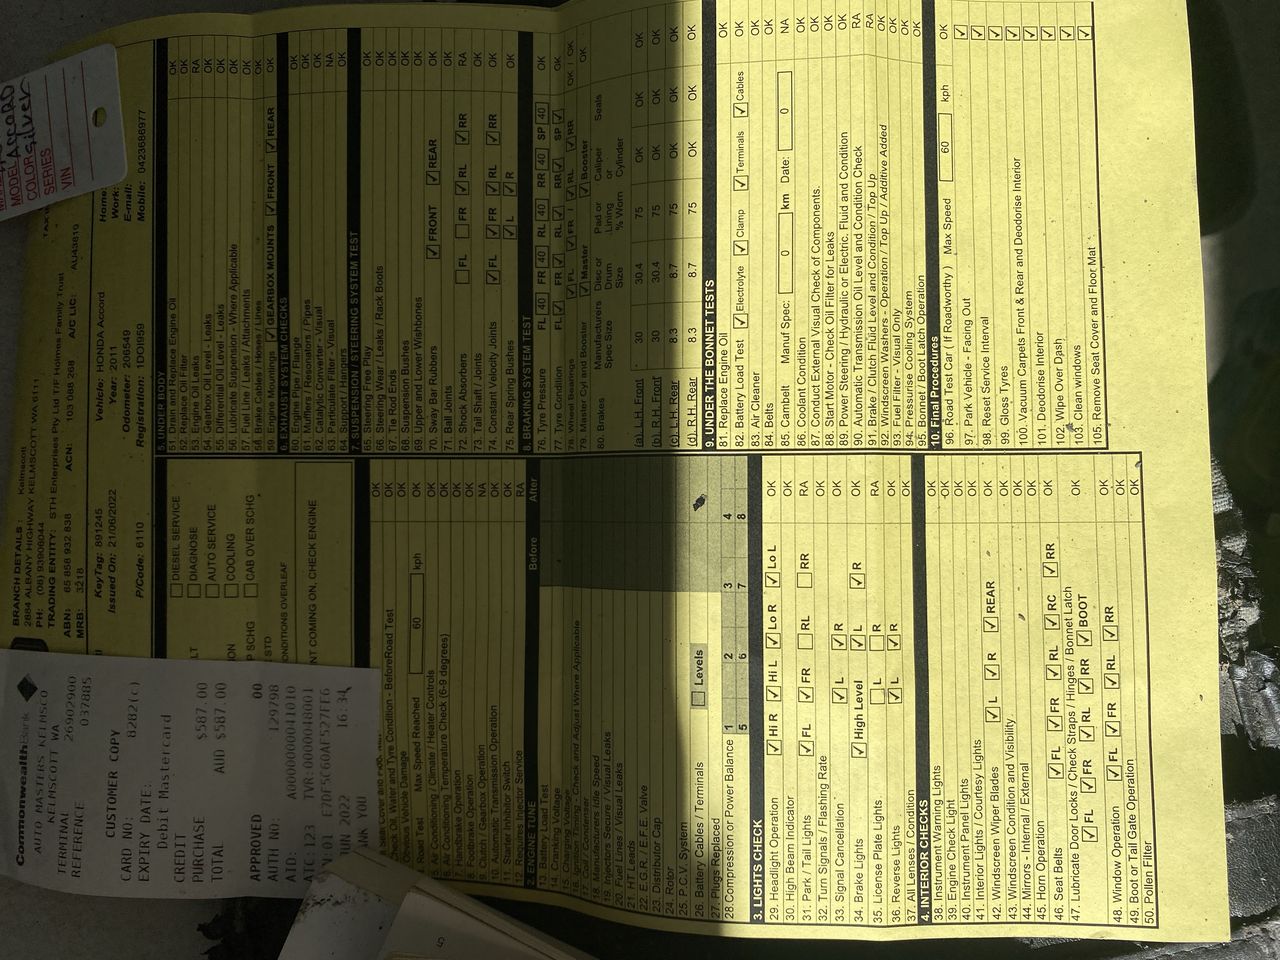 MODEL ACCORD
COLOR Silver
SERIES
VIN
CommonwealthBank
AUTO MASTERS KELMSCO
KELMSCOTT WA
TERMINAL 26902900
REFERENCE 037885
CUSTOMER COPY
CARD NO: 8282(c)
EXPIRY DATE:
Debit Mastercard
CREDIT
PURCHASE $587.00
TOTAL AUD $587.00
APPROVED 00
AUTH NO: 129798
AID: A0000000041010
ATC:123 TVR:0000048001
16:34
BRANCH DETAILS : Kelmscott
2884 ALBANY HIGHWAY KELMSCOTT WA 6111
PH: (08) 93906044
TRADING ENTITY: STH Enterprises Pty Ltd T/F Holmes Family Trust
ABN: 65 858 932 838 ACN: 103 088 268 A/C LIC: AU43819
MRB: 3218
KeyTag: 891245 Vehicle: HONDA Accord Home:
Issued On: 21/06/2022 Year: 2011 Work:
Odometer: 206549 E-mail:
P/Code: 6110 Registration: 1DOI959 Mobile: 0423686977
DIESEL SERVICE
DIAGNOSE
AUTO SERVICE
COOLING
CAB OVER SCHG
CONDITIONS OVERLEAF
NT COMING ON, CHECK ENGINE
Condition - BeforeRoad Test OK
Vehicle Damage OK
Road Test Max Speed Reached 60 kph OK
Climate / Heater Controls OK
6. Air Conditioning Temperature Check (6-9 degrees) OK
7. Handbrake Operation OK
8. Footbrake Operation OK
9. Clutch / Gearbox Operation NA
10. Automatic Transmission Operation OK
11. Starter Inhibitor Switch OK
12. Requires Injector Service RA
2. ENGINE TUNE Before After
13. Battery Load Test
14. Cranking Voltage
15. Charging Voltage
16. Ignition Timing - Check and Adjust Where Applicable
17. Coil / Condenser
18. Manufacturers Idle Speed
19. Injectors Secure / Visual Leaks
20. Fuel Lines / Visual Leaks
21. H.T. Leads
22. E.G.R. / E.F.E. Valve
23. Distributor Cap
24. Rotor
25. P.C.V. System
26. Battery Cables / Terminals Levels
27. Plugs Replaced
28. Compression or Power Balance 1 2 3 4
5 6 7 8
3. LIGHTS CHECK
29. Headlight Operation ☑ Hi R ☑ Hi L ☑ Lo R ☑ Lo L OK
30. High Beam Indicator OK
31. Park / Tail Lights ☑ FL ☑ FR ☐ RL ☐ RR RA
32. Turn Signals / Flashing Rate OK
33. Signal Cancellation ☑ L ☑ R OK
34. Brake Lights ☑ High Level ☑ L ☑ R OK
35. License Plate Lights ☐ L ☐ R RA
36. Reverse Lights ☑ L ☑ R OK
37. All Lenses / Condition OK
4. INTERIOR CHECKS
38. Instrument Warning Lights OK
39. Engine Check Light OK
40. Instrument Panel Lights OK
41. Interior Lights / Courtesy Lights OK
42. Windscreen Wiper Blades ☑ L ☑ R ☑ REAR OK
43. Windscreen Condition and Visibility OK
44. Mirrors - Internal / External OK
45. Horn Operation OK
46. Seat Belts ☑ FL ☑ FR ☑ RL ☑ RC ☑ RR OK
47. Lubricate Door Locks / Check Straps / Hinges / Bonnet Latch OK
☑ FL ☑ FR ☑ RL ☑ RR ☑ BOOT
48. Window Operation ☑ FL ☑ FR ☑ RL ☑ RR OK
49. Boot or Tail Gate Operation OK
50. Pollen Filter OK
5. UNDER BODY
51. Drain and Replace Engine Oil OK
52. Replace Oil Filter OK
53. Engine Oil Leaks RA
54. Gearbox Oil Level - Leaks OK
55. Differential Oil Level - Leaks OK
56. Lubricate Suspension - Where Applicable OK
57. Fuel Lines / Leaks / Attachments OK
58. Brake Cables / Hoses / Lines OK
59. Engine Mountings ☑ GEARBOX MOUNTS ☑ FRONT ☑ REAR OK
6. EXHAUST SYSTEM CHECKS
60. Engine Pipe / Flange OK
61. Mufflers / Resonators / Pipes OK
62. Catalytic Converter - Visual OK
63. Particulate Filter - Visual NA
64. Support Hangers OK
7. SUSPENSION / STEERING SYSTEM TEST
65. Steering Free Play OK
66. Steering Wear / Leaks / Rack Boots OK
67. Tie Rod Ends OK
68. Suspension Bushes OK
69. Upper and Lower Wishbones OK
70. Sway Bar Rubbers ☑ FRONT ☑ REAR OK
71. Ball Joints OK
72. Shock Absorbers ☐ FL ☐ FR ☑ RL ☑ RR RA
73. Tail Shaft / Joints OK
74. Constant Velocity Joints ☑ FL ☑ FR ☑ RL ☑ RR OK
75. Rear Spring Bushes ☑ L ☑ R OK
8. BRAKING SYSTEM TEST
76. Tyre Pressure FL 40 FR 40 RL 40 RR 40 SP 40 OK
77. Tyre Condition FL ☑ FR ☑ RL ☑ RR ☑ SP ☑ OK
78. Wheel Bearings ☑ FL ☑ FR ☑ RL ☑ RR OK / OK
79. Master Cylinder and Booster ☑ Master ☑ Booster OK
80. Brakes Manufacturers Spec Size Disc or Drum Size Pad or Lining % Worn Caliper or Cylinder Seals
(a) L.H. Front 30 30.4 75 OK OK OK
(b) R.H. Front 30 30.4 75 OK OK OK
(c) L.H. Rear 8.3 8.7 75 OK OK OK
(d) R.H. Rear 8.3 8.7 75 OK OK OK
9. UNDER THE BONNET TESTS
81. Replace Engine Oil OK
82. Battery Load Test ☑ Electrolyte ☑ Clamp ☑ Terminals ☑ Cables OK
83. Air Cleaner OK
84. Belts OK
85. Cambelt Manuf Spec: 0 0 km Date: 0 NA
86. Coolant Condition OK
87. Conduct External Visual Check of Components. OK
88. Start Motor - Check Oil Filter for Leaks OK
89. Power Steering / Hydraulic or Electric. Fluid and Condition OK
90. Automatic Transmission Oil Level and Condition Check RA
91. Brake / Clutch Fluid Level and Condition / Top Up RA
92. Windscreen Washers - Operation / Top Up / Additive Added OK
93. Fuel Filter - Visual Only OK
94. Pressurise Cooling System OK
95. Bonnet / Bonnet Latch Operation OK
10. Final Procedures
96. Road Test Car ( If Roadworthy ) Max Speed 60 kph OK
97. Park Vehicle - Facing Out ☑
98. Reset Service Interval ☑
99. Gloss Tyres ☑
100. Vacuum Carpets Front & Rear and Deodorise Interior ☑
101. Deodorise Interior ☑
102. Wipe Over Dash ☑
103. Clean windows ☑
105. Remove Seat Cover and Floor Mat ☑